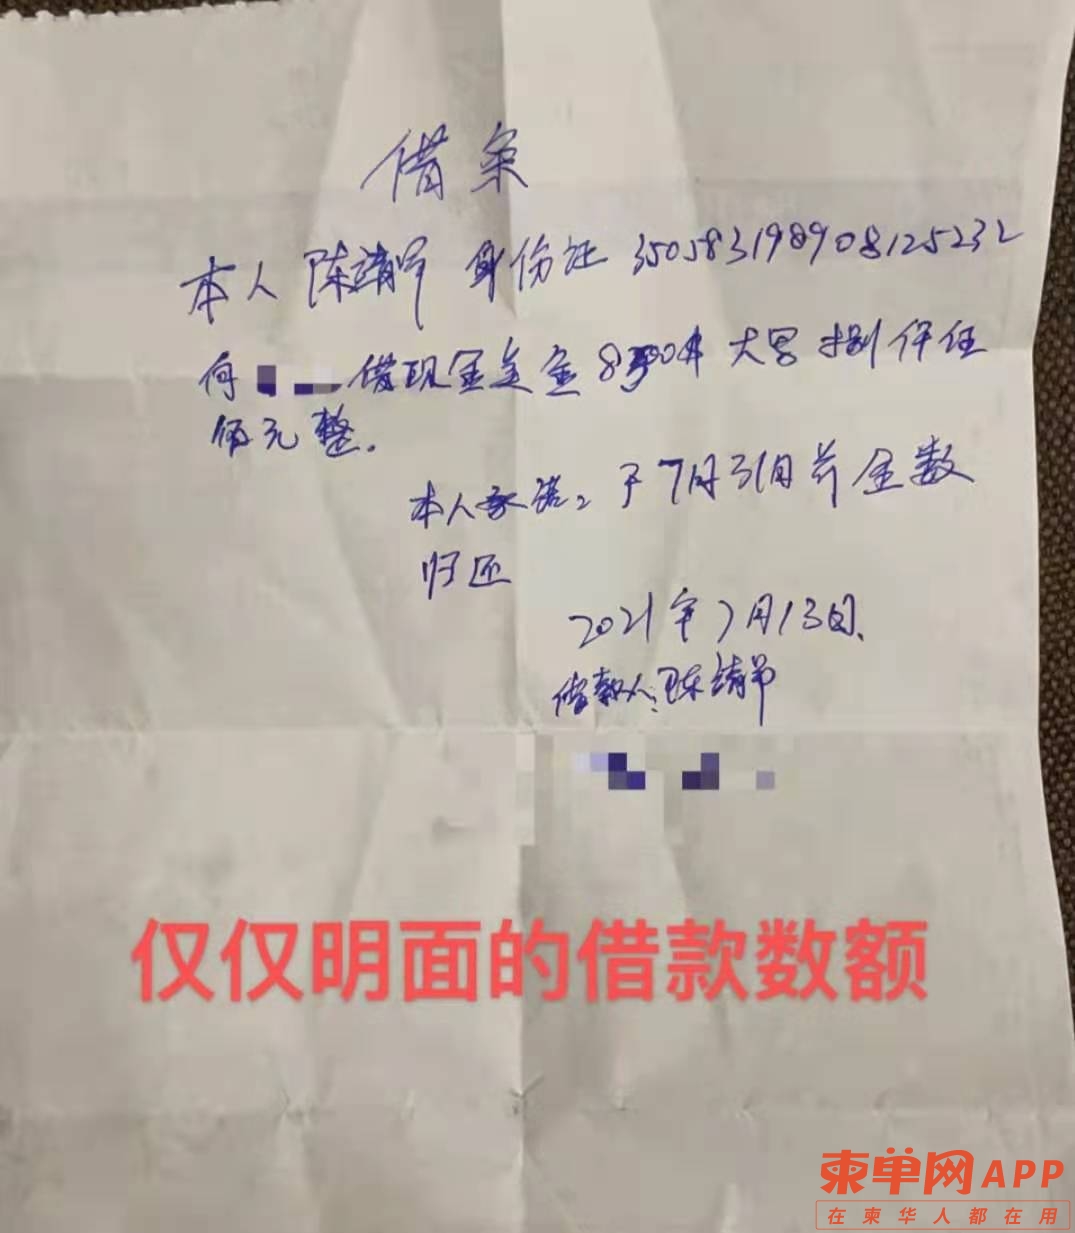 借条
本人 陈靖 身份证 350583198908125232
向 借现金美金 8500 大写 捌仟伍
佰元整.
本人承诺, 于7月31日前全数
归还
2021年7月13日.
借款人:陈靖
仅仅明面的借款数额
柬单网APP
在柬华人都在用